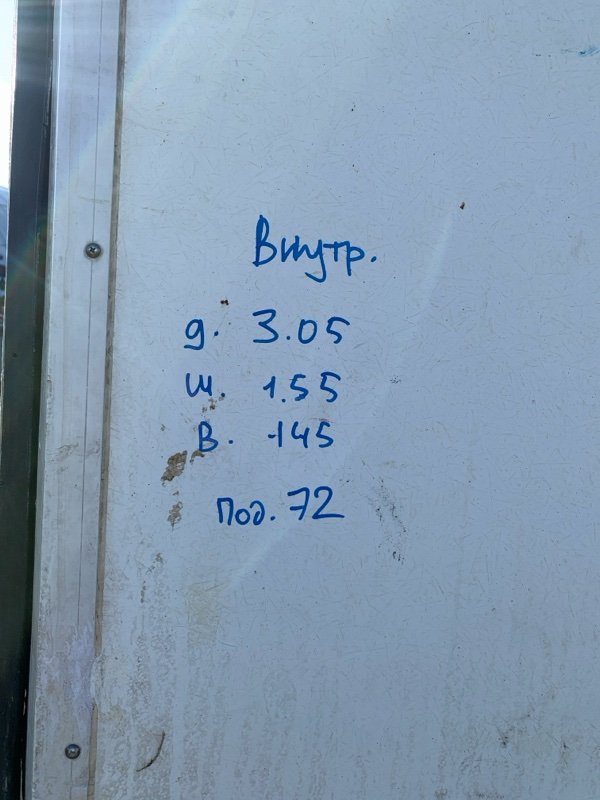 Внутр.
д. 3.05
ш. 1.55
в. 145
Под. 72